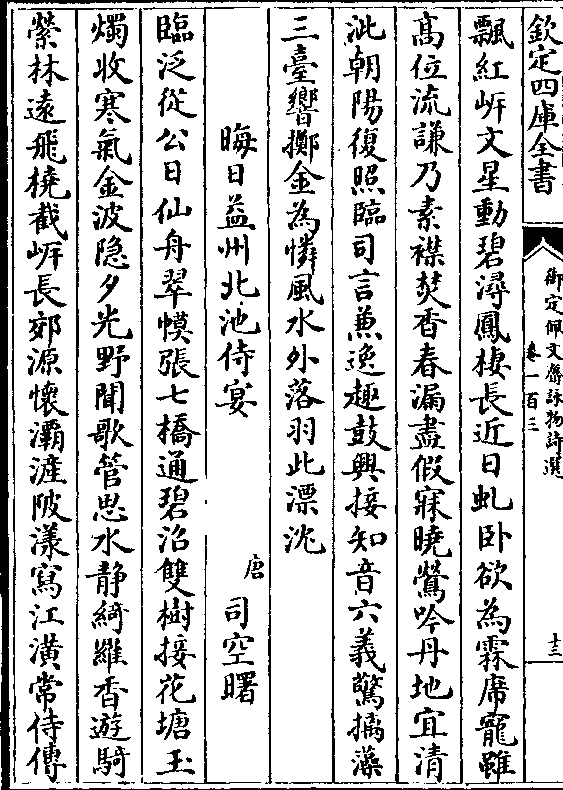 欽定四庫全書
御定佩文齋詠物詩選
卷一百三
十三
飄紅㟁文星動碧潯鳳棲長近日虬卧欲為霖席寵雖
髙位流謙乃素襟焚香春漏盡假寐曉鶯吟丹地宜清
泚朝陽復照臨司言兼逸趣鼓興接知音六義驚摛藻
三臺響擲金為憐風水外落羽此漂沈
晦日益州北池侍宴
唐 司空曙
臨泛從公日仙舟翠幙張七橋通碧沼雙樹接花塘玉
燭收寒氣金波隐夕光野聞歌管思水静綺羅香遊騎
縈林逺飛橈截㟁長郊源懷灞滻陂漾寫江潢常侍傳